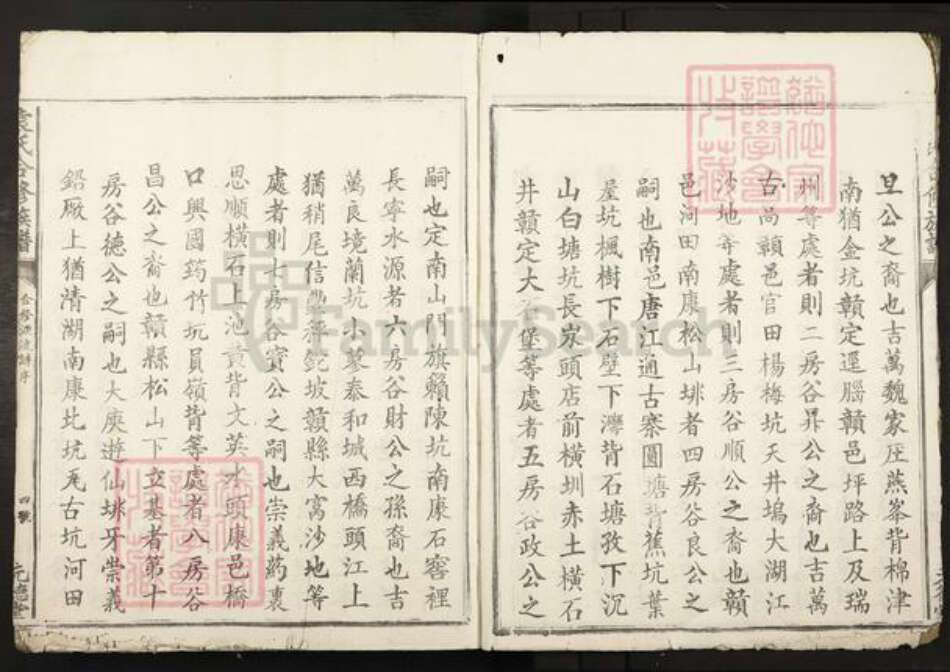 旦公之裔也吉萬魏家庄燕峯背棉津
南猶金坑贛定逕腦贛邑坪路上及瑞
州等處者則二房谷昇公之裔也吉萬
古高贛邑官田楊梅坑天井塢大湖江
沙地等處者則三房谷順公之裔也贛
邑河田南康松山垇者四房谷良公之
嗣也南邑唐江通古寨圓塘背蕉坑葉
屋坑楓樹下石壁下灣背石塘孜下沉
山白塘坑長岽頭店前橫圳赤土橫石
井贛定大堡等處者五房谷政公之
嗣也定南山門旗賴陳坑南康石窖裡
長寧水源者六房谷財公之孫裔也吉
萬良境蘭坑小墓泰和城西橋頭江上
猶稍尾信坡贛縣大窩沙地等
處者則七房谷寶公之嗣也崇義葯裏
思順橫石上池黃背文英水頭康邑橋
口興國筠竹坑員嶺背等處者八房谷
昌公之裔也贛縣松山下立基者第十
房谷德公之嗣也大庾遊仙垇牙崇義
鉛厰上猶清湖南康北坑厎古坑河田
袁氏合修族譜
合修源流詳序
四號
元德堂
FamilySearch